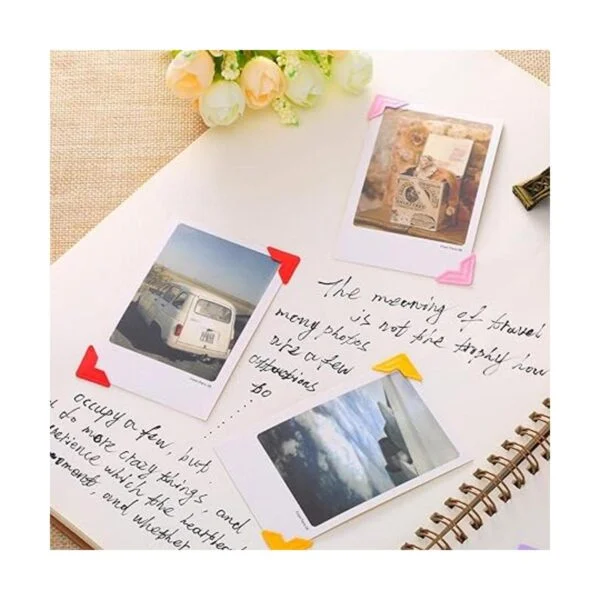 The meaning of travel
is not the trophy how
many photos
are a few
attractions
to
occupy a few, but
to do more crazy things, and
experience which the heartfelt
moments, and whether